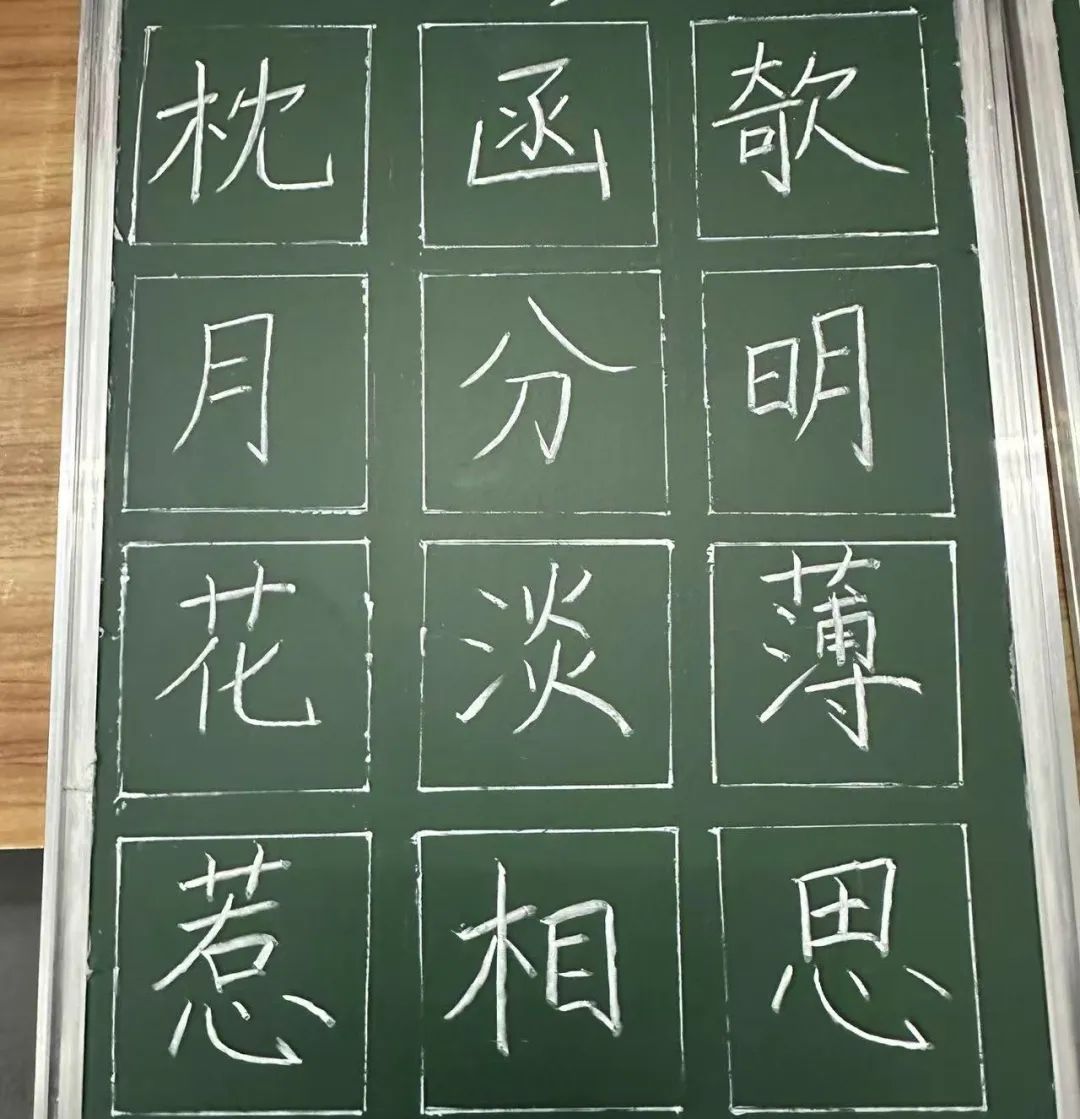 枕函欹
月分明
花淡薄
惹相思